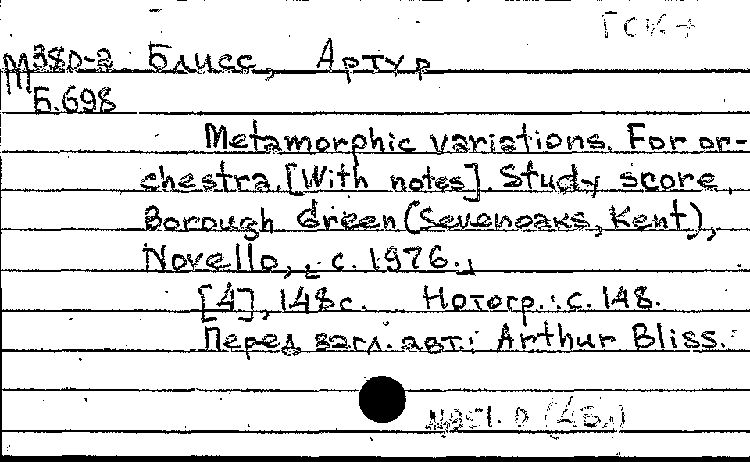 ГСК+
М380-2 Блисс, Артур
Б.698
Metamorphic variations. For or-
chestra. [With notes]. Study score.
Borough Green (Sevenoaks, Kent),
Novello, [c. 1976.]
[4], 148 с. Нотогр.: с. 148.
Перед загл. авт.: Arthur Bliss.